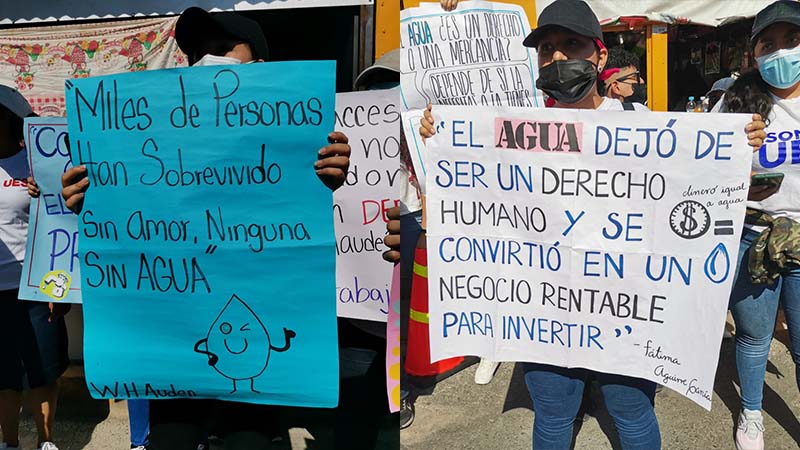 "Miles de Personas
Han Sobrevivido
Sin Amor, Ninguna
Sin AGUA"
W.H Auden
UES
Acces
no
auden
trabaj
AGUA ¿ES UN DERECHO
O UNA MERCANCIA?
DEPENDE DE SI LA
"EL AGUA DEJÓ DE
SER UN DERECHO
HUMANO Y SE
CONVIRTIÓ EN UN
NEGOCIO RENTABLE
PARA INVERTIR"
dinero igual
a agua
$ =
- Fátima
Aguirre García